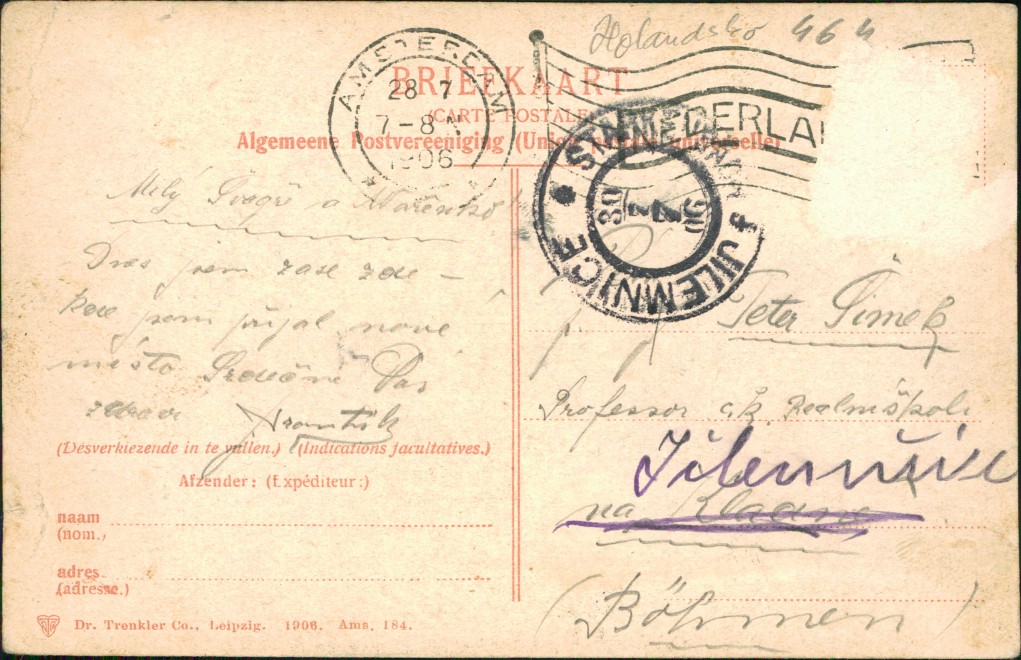 Holandsko 464
AMSTERDAM
28 7
7-8 N
1906
NEDERLA
BRIEFKAART
(CARTE POSTALE)
Algemeene Postvereeniging (Union postale universelle)
STARKENBACH
30 7 06
JILEMNICE
Milý Švagře a Mařenko!
Dnes jsem zase zde –
kde jsem přijal nové
místo Srdečně Vás
zdraví František
(Desverkiezende in te vullen.) (Indications facultatives.)
Afzender: (Expéditeur:)
naam
(nom.)
adres
(adresse.)
Dr. Trenkler Co., Leipzig. 1906. Ams. 184.
P. T.
Peter Šimek
Professor c. k. Realní školi
Jilemnice
na Kladně
(Böhmen)